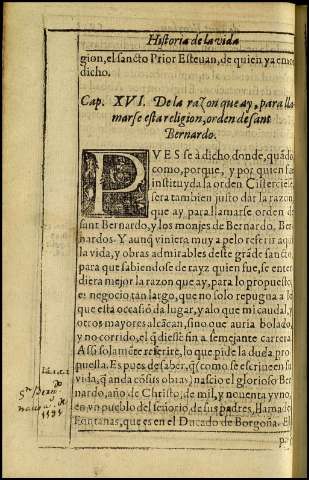 Historia de la vida
gion, el sancto Prior Esteuan, de quien ya emos
dicho.
Cap. XVI. De la razon que ay, para lla-
marse esta religion, orden de sant
Bernardo.
PVES se à dicho donde, quãdo
como, porque, y por quien fue
instituyda la orden Cisterciese,
sera tambien justo dar la razon
que ay, para llamarse orden de
sant Bernardo, y los monjes de Bernardo, Ber-
nardos. Y aunq̃ viniera muy a pelo referir aqui
la vida, y obras admirables deste grãde sancto,
para que sabiendose de rayz quien fue, se enten
diera mejor la razon que ay, para lo propuesto,
es negocio tan largo, que no solo repugna a lo
que esta occasiõ da lugar, y a lo que mi caudal, y
otros mayores alcãcan, sino que auria bolado,
y no corrido, el q̃ diesse fin a semejante carrera.
Assi solamẽte referire, lo que pide la duda pro-
puesta. Es pues de saber, q̃ como se escriue en su
vida, q̃ anda cõ sus obras) nascio el glorioso Ber
nardo, año de Christo, de mil, y nouenta y vno,
en vn pueblo del señorio, de sus padres, llamado
Fontanas, que es en el Ducado de Borgoña. El